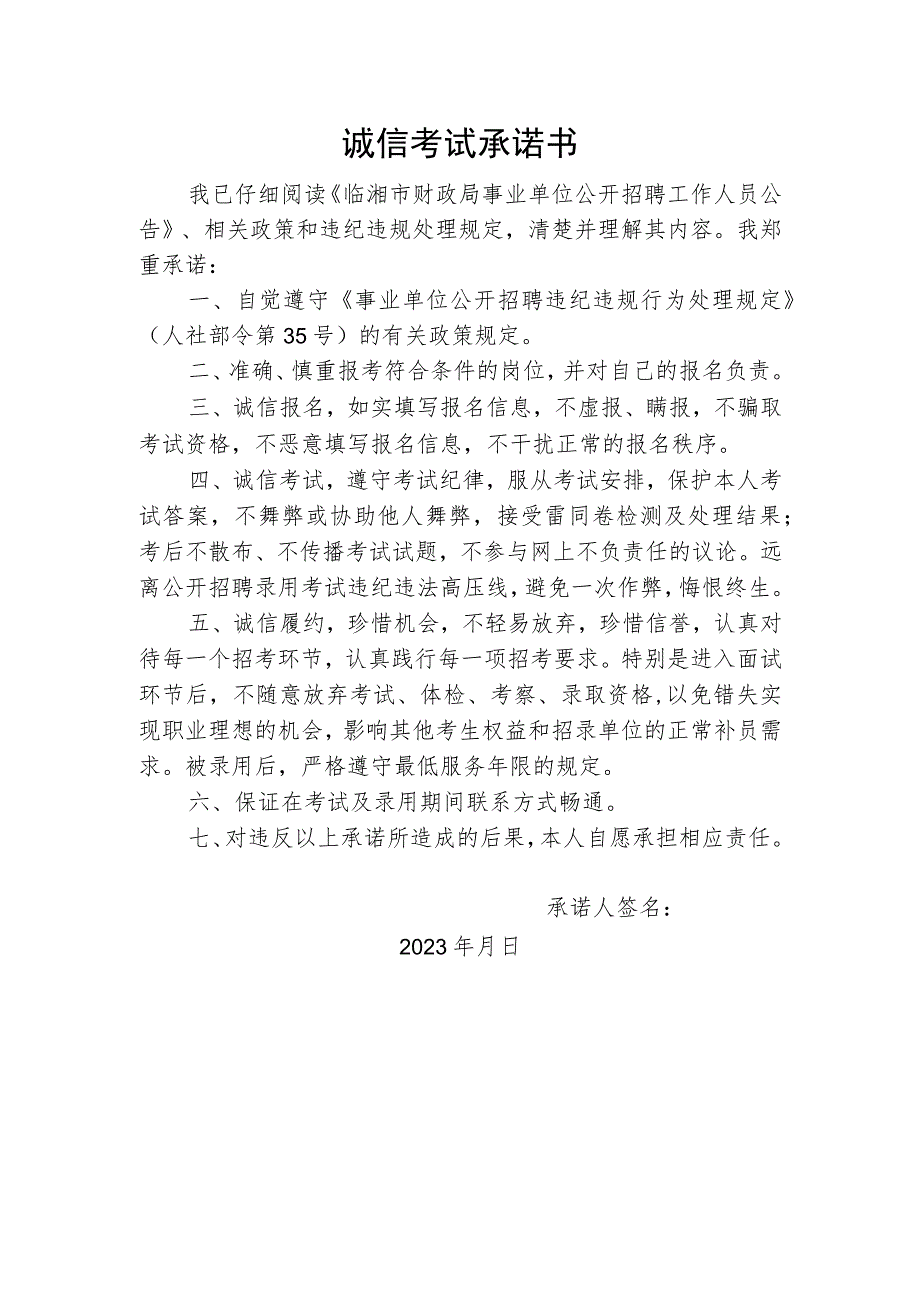 诚信考试承诺书
我已仔细阅读《临湘市财政局事业单位公开招聘工作人员公
告》、相关政策和违纪违规处理规定，清楚并理解其内容。我郑
重承诺：
一、自觉遵守《事业单位公开招聘违纪违规行为处理规定》
（人社部令第 35 号）的有关政策规定。
二、准确、慎重报考符合条件的岗位，并对自己的报名负责。
三、诚信报名，如实填写报名信息，不虚报、瞒报，不骗取
考试资格，不恶意填写报名信息，不干扰正常的报名秩序。
四、诚信考试，遵守考试纪律，服从考试安排，保护本人考
试答案，不舞弊或协助他人舞弊，接受雷同卷检测及处理结果；
考后不散布、不传播考试试题，不参与网上不负责任的议论。远
离公开招聘录用考试违纪违法高压线，避免一次作弊，悔恨终生。
五、诚信履约，珍惜机会，不轻易放弃，珍惜信誉，认真对
待每一个招考环节，认真践行每一项招考要求。特别是进入面试
环节后，不随意放弃考试、体检、考察、录取资格，以免错失实
现职业理想的机会，影响其他考生权益和招录单位的正常补员需
求。被录用后，严格遵守最低服务年限的规定。
六、保证在考试及录用期间联系方式畅通。
七、对违反以上承诺所造成的后果，本人自愿承担相应责任。
承诺人签名：
2023 年月日